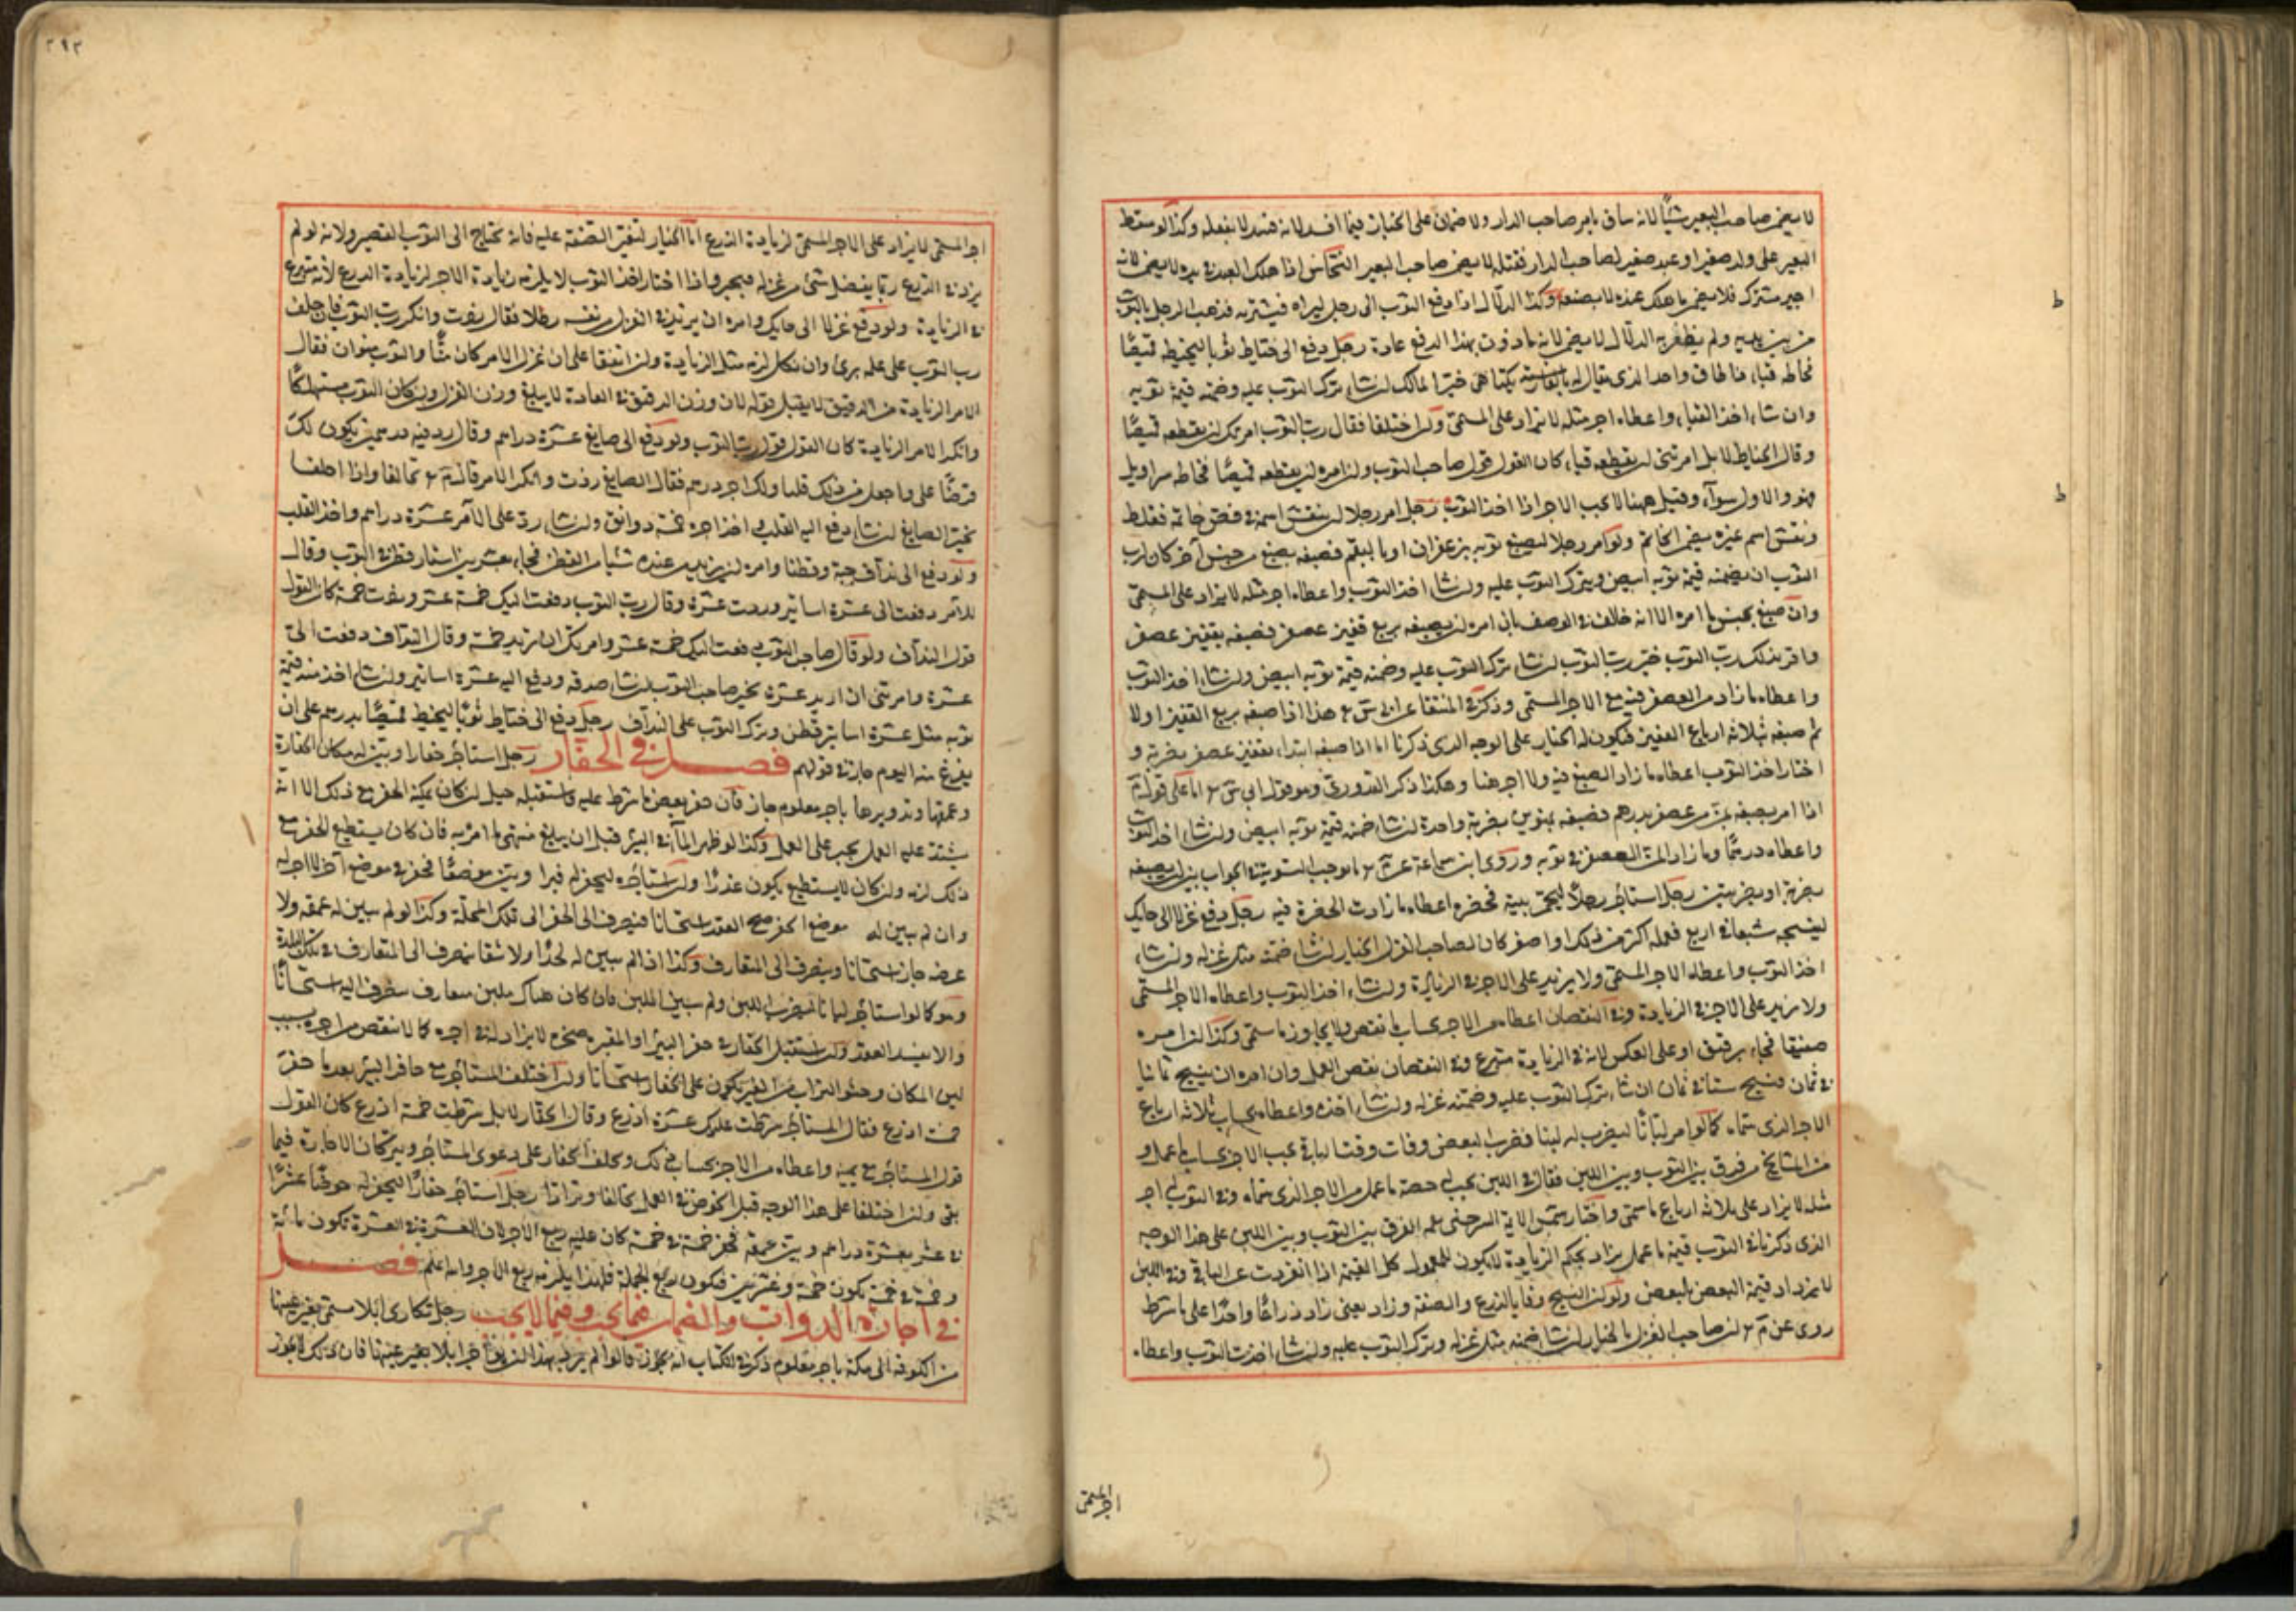 لا يضمن صاحب البعير شيئا لانه ساق بامر صاحب الدار ولا ضمان على الخباز فيما افسد لانه فسد لا بفعله وكذا لو سقط
البعير على ولد صغير او عبد صغير لصاحب الدار فقتله لا يضمن صاحب البعير النخاس اذا هلك العبد في يده لا يضمن لانه
اجير مشترك فلا يضمن ما هلك عنده لا بصنعه وكذا الدلال اذا دفع الثوب الى رجل ليراه فيشتريه فذهب الرجل بالثوب
من بين يديه ولم يظفر به الدلال لا يضمن لانه ماذون بهذا الدفع عادة رجل دفع الى خياط ثوبا ليخيطه قميصا
فخاطه قباء طاق واحد الذي يقال له بالفارسية يكتاهى خير المالك ان شاء ترك الثوب عليه وضمنه قيمة ثوبه
وان شاء اخذ القباء واعطاه اجر مثله لا يزاد على المسمى ولو اختلفا فقال رب الثوب امرتك ان تقطعه قميصا
وقال الخياط لا بل امرتني ان اقطعه قباء كان القول قول صاحب الثوب ولو امره ان يقطعه قميصا فخاطه سراويل
فهو والاول سواء وقيل ههنا لا يجب الاجر اذا اخذ الثوب رجل امر رجلا ان ينقش اسمه في فص خاتمه فغلط
ونقش اسم غيره يضمن الخاتم ولو امر رجلا ليصبغ ثوبه بزعفران او بالبقم فصبغه بصبغ من جنس آخر كان لرب
الثوب ان يضمنه قيمة ثوبه ابيض ويترك الثوب عليه وان شاء اخذ الثوب واعطاه اجر مثله لا يزاد على المسمى
وان صبغ بجنس ما امره الا انه خالف في الوصف بان امره ان يصبغه بربع قفيز عصفر فصبغه بقفيز عصفر
واقر بذلك رب الثوب خير رب الثوب ان شاء ترك الثوب عليه وضمنه قيمة ثوبه ابيض وان شاء اخذ الثوب
واعطاه ما زاد من العصفر فيه مع الاجر المسمى وذكر في المنتقى هذا اذا صبغه بربع القفيز اولا
ثم صبغه بثلاثة ارباع القفيز فيكون له الخيار على الوجه الذي ذكرنا اما اذا صبغه ابتداء بقفيز عصفر بضربة و
اختار اخذ الثوب اعطاه ما زاد الصبغ فيه ولا اجر هنا وهكذا ذكر القدوري وهو قول ابي
اذا امره بصبغه بمن من عصفر بدرهم فصبغه بمنوين بضربة واحدة ان شاء ضمنه قيمة ثوبه ابيض وان شاء اخذ الثوب
واعطاه درهما وما زاد المن العصفر في ثوبه وروى ابن سماعة ما يوجب التسوية في الجواب بين ان يصبغه
بضربة او بضربتين رجل استاجر رجلا ليجصص بيته فخضره اعطاه ما زادت الخضرة فيه رجل دفع غزلا الى حايك
لينسجه سبعا في اربع فعمله اكثر من ذلك او اصغر كان لصاحب الغزل الخيار ان شاء ضمنه مثل غزله وان شاء
اخذ الثوب واعطاه الاجر المسمى ولا يزيد على الاجر في الزيادة وان شاء اخذ الثوب واعطاه الاجر المسمى
ولا يزيد على الاجر في الزيادة وفي النقصان اعطاه من الاجر بحساب ما نقص ولا يجاوز ما سمى وكذا لو امره
صفيقا فجاء برقيق او على العكس لانه في الزيادة متبرع وفي النقصان نقص العمل وان امره ان ينسج ثمانيا
في ثمان فنسج ستا في ثمان ان شاء ترك الثوب عليه وضمنه غزله وان شاء اخذه واعطاه بحساب ثلاثة ارباع
الاجر الذي سماه كما لو امر لبانا ليضرب له لبنا فضرب البعض وفات وقت الباقي يجب الاجر بحساب ما عمل و
من المشايخ من فرق بين الثوب وبين اللبن فقال في اللبن يجب حصة ما عمل من الاجر الذي سماه وفي الثوب اجر
مثله لا يزاد على ثلاثة ارباع ما سمى واختار شمس الائمة السرخسي الفرق بين الثوب وبين اللبن على هذا الوجه
الذي ذكرنا في الثوب قيمة ما عمل يزاد بحكم الزيادة لا يكون للمعمول كل القيمة اذا انفردت عن الباقي وفي اللبن
لا يزداد قيمة البعض بالبعض ولو كان النسيج وفايا بالذرع والصفة وزاد يعني زاد ذراعا واحدا على ما شرط
روي عن ان صاحب الغزل بالخيار ان شاء ضمنه مثل غزله وترك الثوب عليه وان شاء اخذ الثوب واعطاه
اجر المسمى
٣٩٣
اجر المسمى لا يزاد على الاجر المسمى لزيادة الذرع اما الخيار لتغير الصفقة عليه فانه يحتاج الى الثوب القصير ولانه لو لم
يزد في الذرع ربما يفضل شيء من غزله فيجبر واذا اختار اخذ الثوب لا يلزمه زيادة الاجر لزيادة الذرع لانه متبرع
في الزيادة ولو دفع غزلا الى حايك وامره ان يزيد في الغزل من نفسه رطلا فقال زدت وانكر رب الثوب فان حلف
رب الثوب على علمه برئ وان نكل لزمه مثل الزيادة وان اتفقا على ان غزل الامر كان منا والثوب منوان فقال
الامر الزيادة من الدقيق لا يقبل قوله لان وزن الدقيق في العادة لا يبلغ وزن الغزل وان كان الثوب مستهلكا
وانكر الامر الزيادة كان القول قول رب الثوب ولو دفع الى صايغ عشرة دراهم وقال زد فيه درهمين يكون لك
قرضا علي واجعل من ذلك قلبا ولك اجر درهم فقال الصايغ زدت وانكر الامر قال تحالفا واذا حلفا
يخير الصايغ ان شاء دفع اليه القلب واخذ اجره خمسة دوانق وان شاء رد على الآمر عشرة دراهم واخذ القلب
ولو دفع الى نداف جبة وقطنا وامره ان يزيد من عنده شيئا من القطن فجاء بعشرين استار قطن في الثوب وقال
للامر دفعت الي عشرة اساتير وزدت عشرة وقال رب الثوب دفعت اليك خمسة عشر وزدت خمسة كان القول
قول النداف ولو قال صاحب الثوب دفعت اليك خمسة عشر وامرتك ان تزيد خمسة وقال النداف دفعت الي
عشرة وامرتني ان ازيد عشرة يخير صاحب الثوب ان شاء صدقه ودفع اليه عشرة اساتير وان شاء اخذ منه قيمة
ثوبه مثل عشرة اساتير قطن وترك الثوب على النداف رجل دفع الى خياط ثوبا ليخيط قميصا بدرهم على ان
يفرغ منه اليوم جاز في قولهم فصل في الحفار رجل استاجر حفارا وبين له مكان الحفارة
وعمقها وتدويرها باجر معلوم جاز فان حفر بعض ما شرط عليه فاستقبله جبل ان كان يمكنه الحفر مع ذلك الا انه
يشتد عليه العمل يجب على العمل وكذا لو ظهر الماء في البئر قبل ان يبلغ منتهى ما امر به فان كان يستطيع الحفر مع
ذلك لزمه وان كان لا يستطيع يكون عذرا ولو استاجره ليحفر له قبرا وبين موضعا فحفر في موضع آخر لا اجر له
وان لم يبين له موضع الحفر صح العقد استحسانا فينصرف الى الحفر الى تلك المحلة وكذا لو لم يبين له عمقه ولا
عرضه جاز استحسانا وينصرف الى المتعارف وكذا اذا لم يبين له لحدا ولا شقا ينصرف الى المتعارف في تلك البلدة
وهو كما لو استاجر لبانا ليضرب اللبن ولم يبين الملبن فان كان هناك ملبن متعارف ينصرف اليه استحسانا
والا يفسد العقد ولو استقبل الحفار في حفر البئر او المقبرة صخرة لا يزاد له في اجره كما لا ينقص من اجره بسبب
لين المكان وحثو التراب في القبر يكون على الحفار استحسانا ولو اختلف المستاجر مع حافر البئر بعد ما حفر
خمسة اذرع فقال المستاجر شرطت عليك عشرة اذرع وقال الحفار لا بل شرطت خمسة اذرع كان القول
قول المستاجر مع يمينه واعطاه من الاجر بحساب ذلك ويحلف الحفار على دعوى المستاجر ويترك الاجارة فيما
بقي وان اختلفا على هذا الوجه قبل الخوض في العمل تحالفا وترادا رجل استاجر حفارا ليحفر له حوضا عشرا
في عشر بعشرة دراهم وبين عمقه فحفر خمسة في خمسة كان عليه ربع الاجر لان العشرة في العشرة تكون مائة
وخمسة في خمسة تكون خمسة وعشرين فيكون ربع الجملة فلهذا يلزمه ربع الاجر والله اعلم فصل
في اجارة الدواب والضمان فيما يجب وفيما لا يجب رجل تكارى ابلا مسمى بغير عينها
من الكوفة الى مكة باجر معلوم ذكر في الكتاب انه يجوز قالوا لم يرد بهذا ان يؤاجر ابلا بغير عينها فان ذلك لا يجوز